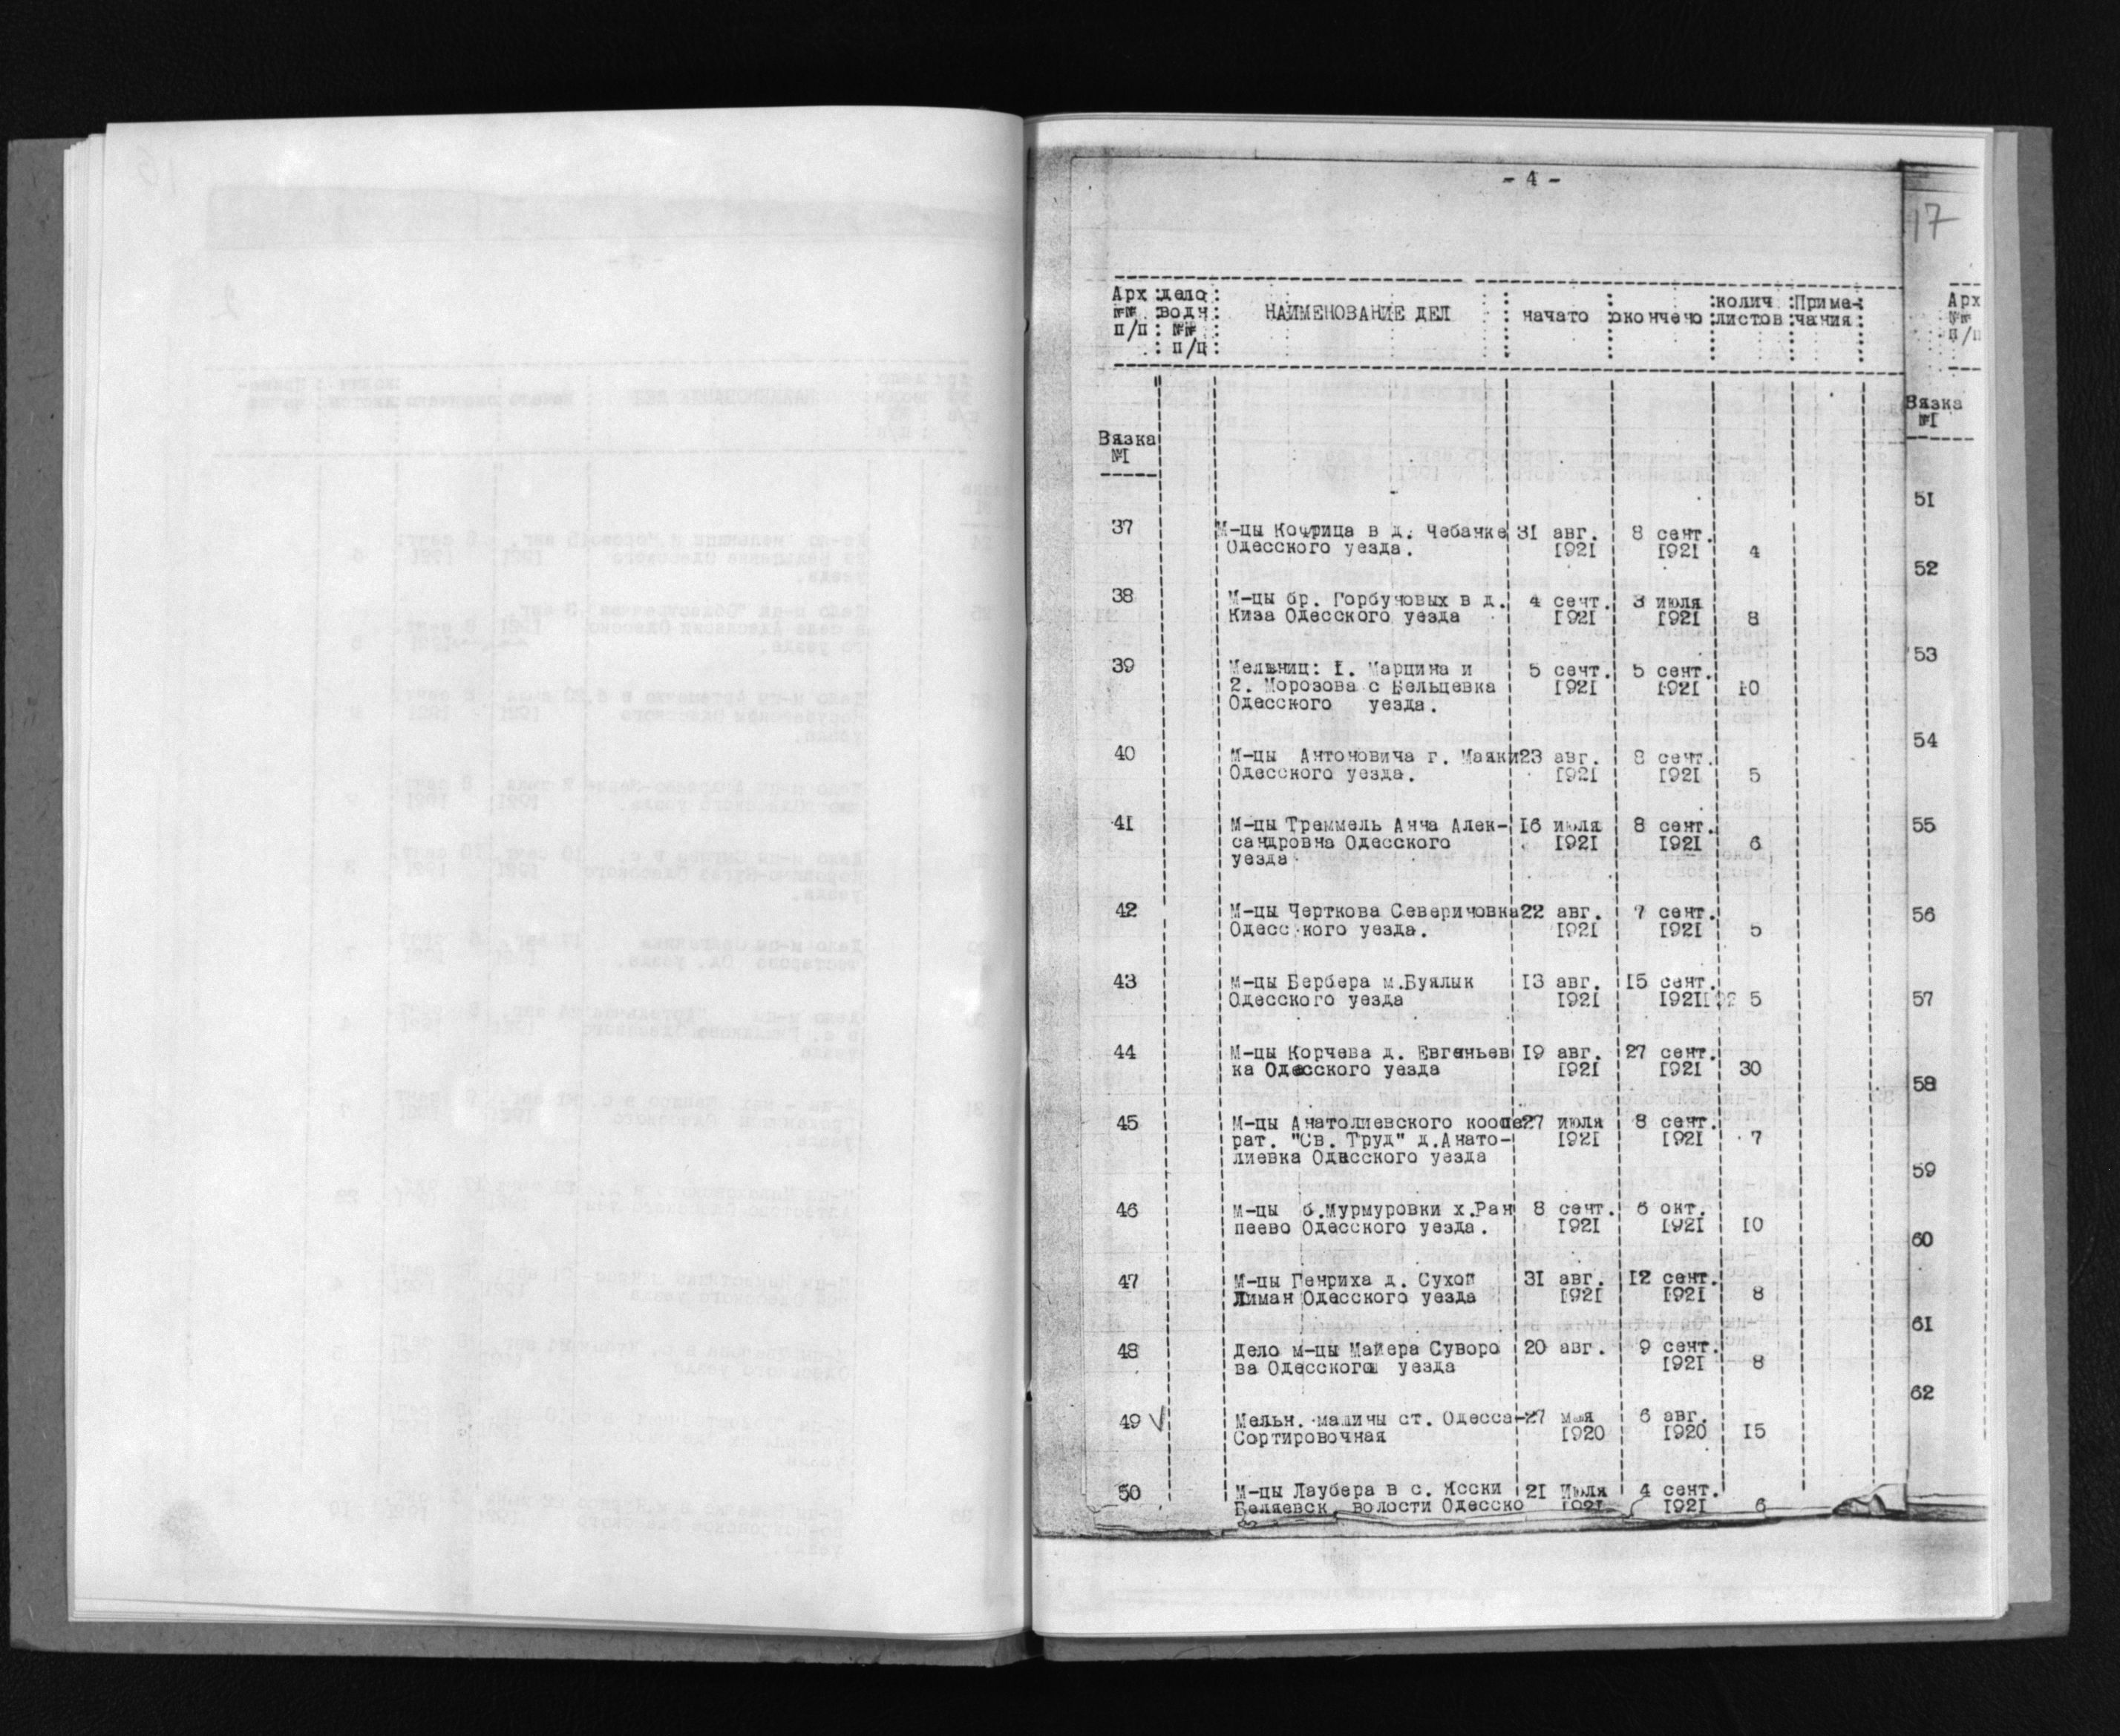 - 4 -
17
Арх :дело: НАИМЕНОВАНИЕ ДЕЛ : начато :окончено :колич :Приме-:
№№ :водн: листов :чания:
п/п : №№ :
: п/п:
Арх
№№
п/п
Вязка
№I
Вязка
№I
37 М-цы Коффица в д. Чебанке 31 авг. 8 сент.
Одесского уезда. 1921 1921 4
38 М-цы бр. Горбуновых в д. 4 сент. 3 июля
Киза Одесского уезда 1921 1921 8
39 Мельниц: I. Марцина и 5 сент. 5 сент.
2. Морозова с Бельцевка 1921 1921 10
Одесского уезда.
40 М-цы Антоновича г. Маяки 23 авг. 8 сент.
Одесского уезда. 1921 1921 5
41 М-цы Треммель Анна Алек- 16 июля 8 сент.
сандровна Одесского 1921 1921 6
уезда
42 М-цы Черткова Севериновка 22 авг. 7 сент.
Одесс кого уезда. 1921 1921 5
43 М-цы Бербера м.Буялык 13 авг. 15 сент.
Одесского уезда 1921 1921 5
44 М-цы Корчева д. Евгеньев 19 авг. 27 сент.
ка Одесского уезда 1921 1921 30
45 М-цы Анатолиевского коопе 27 июля 8 сент.
рат. "Св. Труд" д.Анато- 1921 1921 7
лиевка Одесского уезда
46 М-цы б.Мурмуровки х.Ран 8 сент. 6 окт.
пеево Одесского уезда. 1921 1921 10
47 М-цы Генриха д. Сухой 31 авг. 12 сент.
Лиман Одесского уезда 1921 1921 8
48 Дело м-цы Майера Суворо 20 авг. 9 сент.
ва Одесского уезда 1921 8
49 Мельн. машины ст. Одесса- 27 мая 6 авг.
Сортировочная 1920 1920 15
50 М-цы Лаубера в с. Ясски 21 Июля 4 сент.
Беляевск. волости Одесско 1921 1921 6
51
52
53
54
55
56
57
58
59
60
61
62